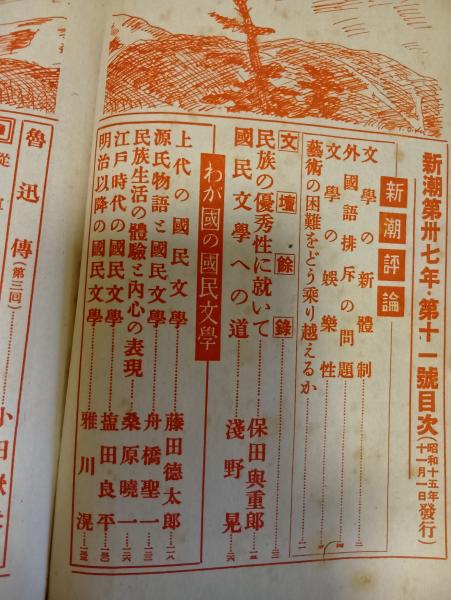 新潮第卅七年・第十一號目次（昭和十五年十一月一日發行）
新潮評論
文學の新體制
外國語排斥の問題
文學の娛樂性
藝術の困難をどう乗り越えるか
文壇餘錄
民族の優秀性に就いて 保田與重郎
國民文學への道 淺野晃
わが國の國民文學
上代の國民文學 藤田德太郎
源氏物語と國民文學 舟橋聖一
民族生活の體驗と內心の表現 桑原曉一
江戶時代の國民文學 藍田良平
明治以降の國民文學 雅川滉
魯迅傳（第三回） 小田嶽夫